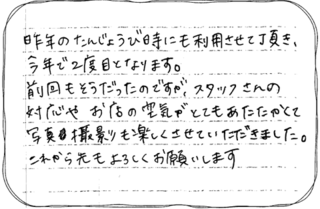 昨年のたんじょうび時にも利用させて頂き、
今年で2度目となります。
前回もそうだったのですが、スタッフさんの
対応や お店の空気がとてもあたたかくて
写真撮影も楽しくさせていただきました。
これから先もよろしくお願いします